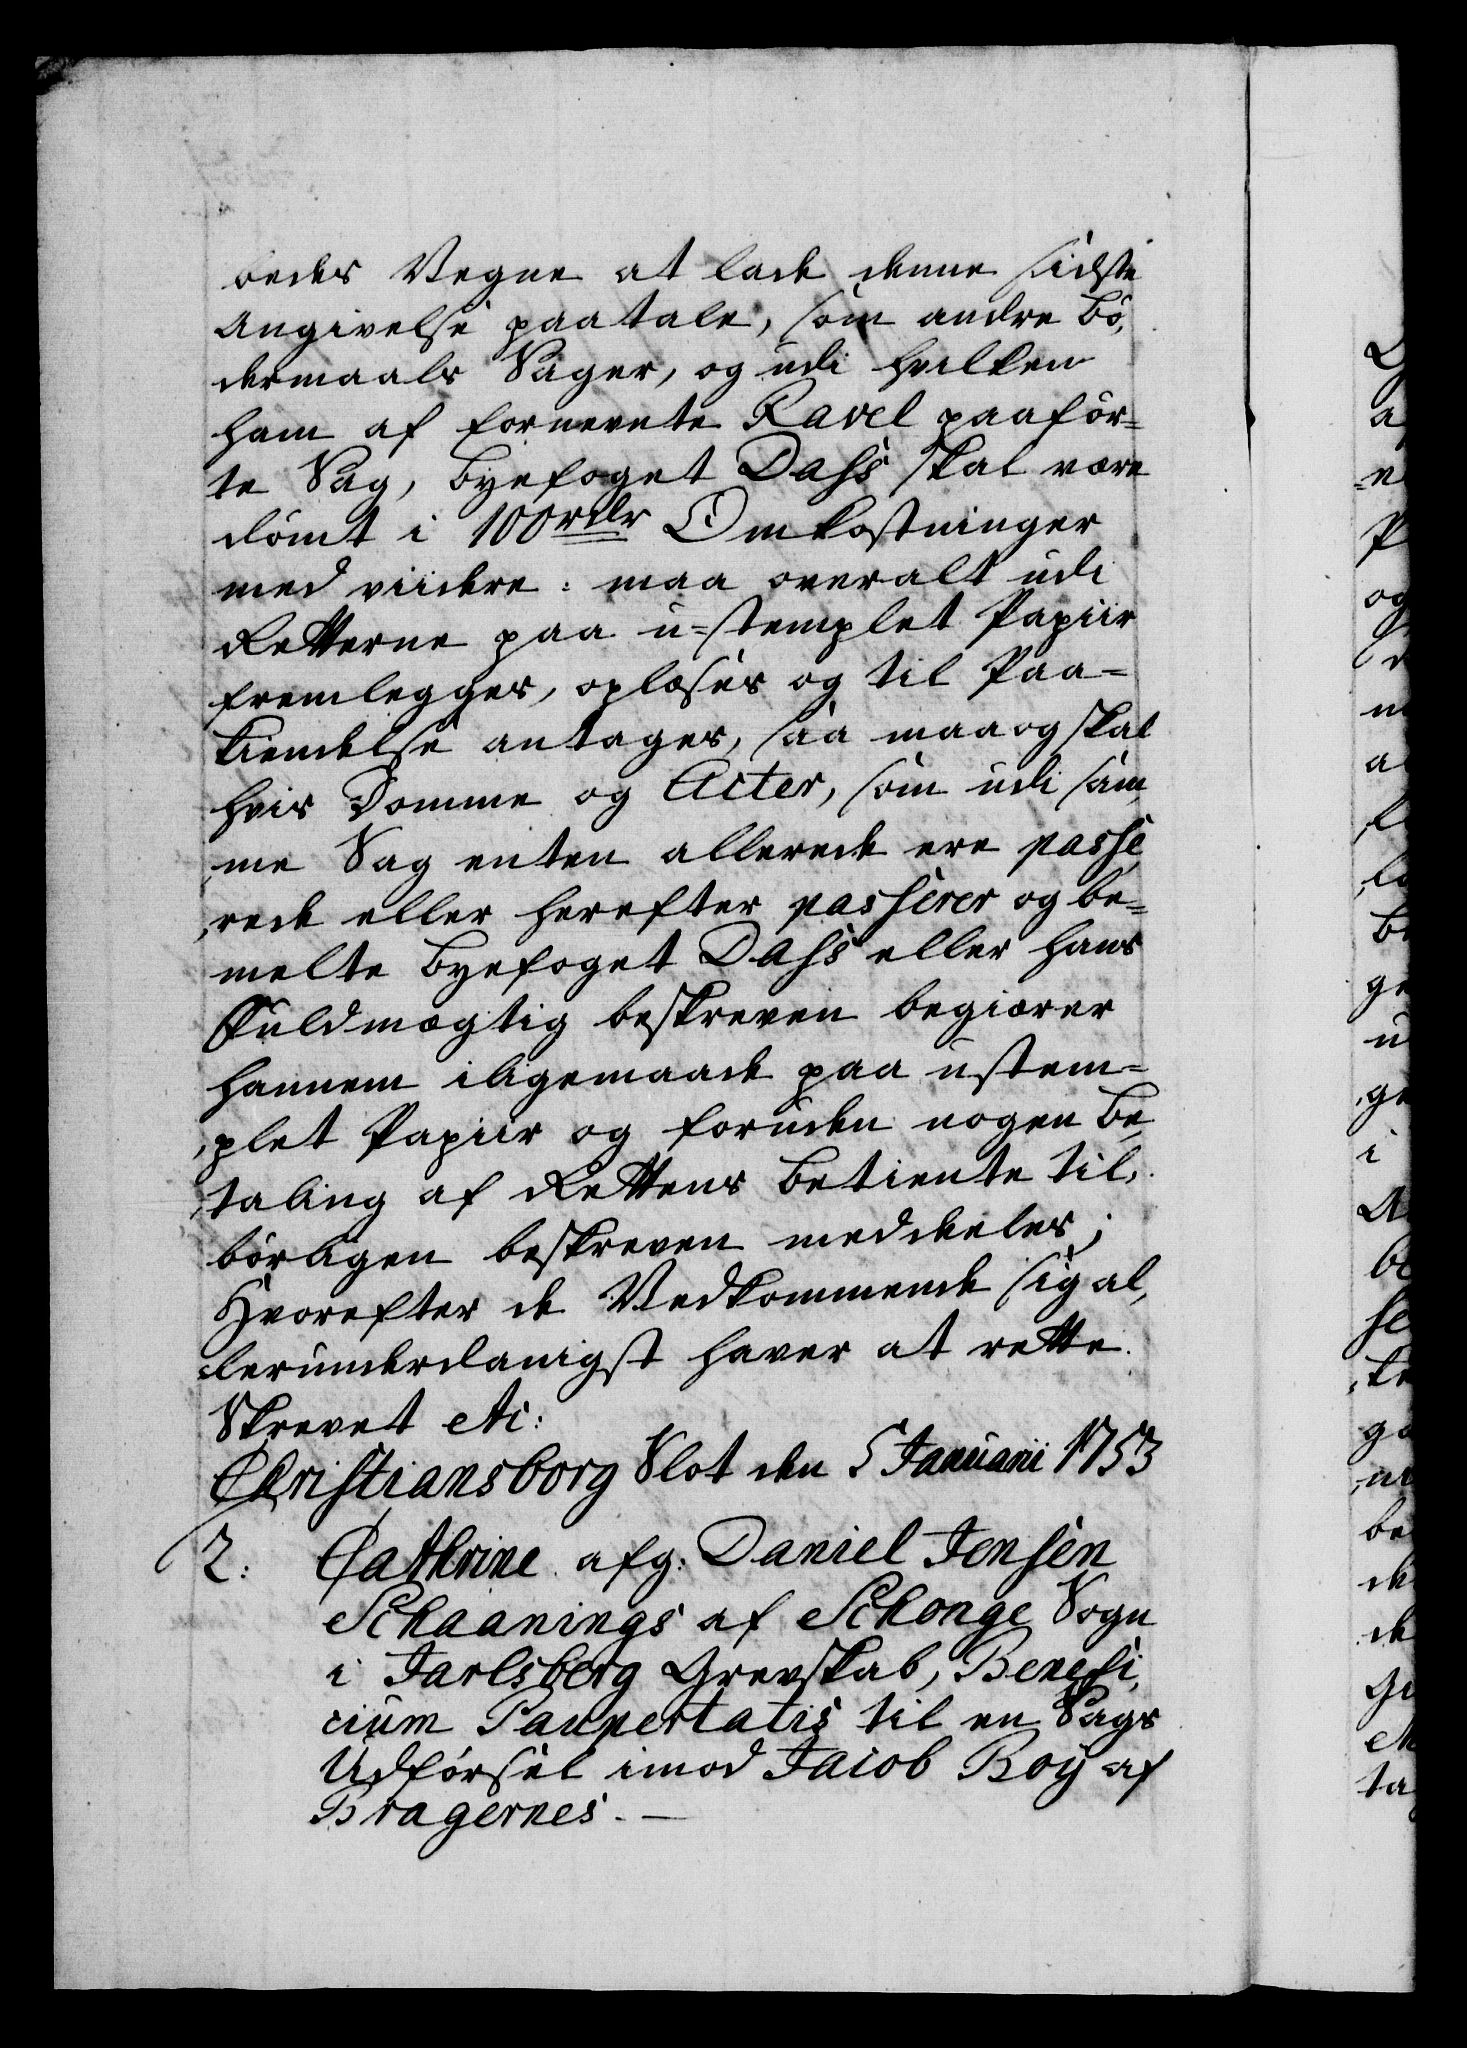 bedes Vegne at lade denne sidste
Angivelse paatale, som andre Bö,
dermaals Sager, og udi hvilken
ham af fornevnte Ravel paaför=
te Sag, Byefoget Dass skal være
dömt i 100 rdlr Omkostninger
med viidere: maa overalt udi
Retterne paa u=stemplet Papiir
fremlegges, oplæses og til Paa=
kiendelse antages, saa maa og skal
hvis Domme og Acter, som udi sam,
me Sag enten allerede ere passe,
,rede eller herefter passerer og be=
melte Byefoget Dass eller hans
Fuldmægtig beskreven begiærer
hannem iligemaade paa ustem=
,plet Papiir og foruden nogen Be,
,taling af Rettens Betiente til,
börligen beskreven meddeeles;
Hvorefter de Vedkommende sig al,
lerunderdanigst haver at rette.
Skrevet etc:
Christiansborg Slot den 5 Januarii 1753
2: Cathrine afg: Daniel Jensen
Schaanings af Schonge Sogn
i Jarlsberg Grevskab, Benefi,
cium Paupertatis til en Sags
Udförsel imod Jacob Boÿ af
Bragernes. —